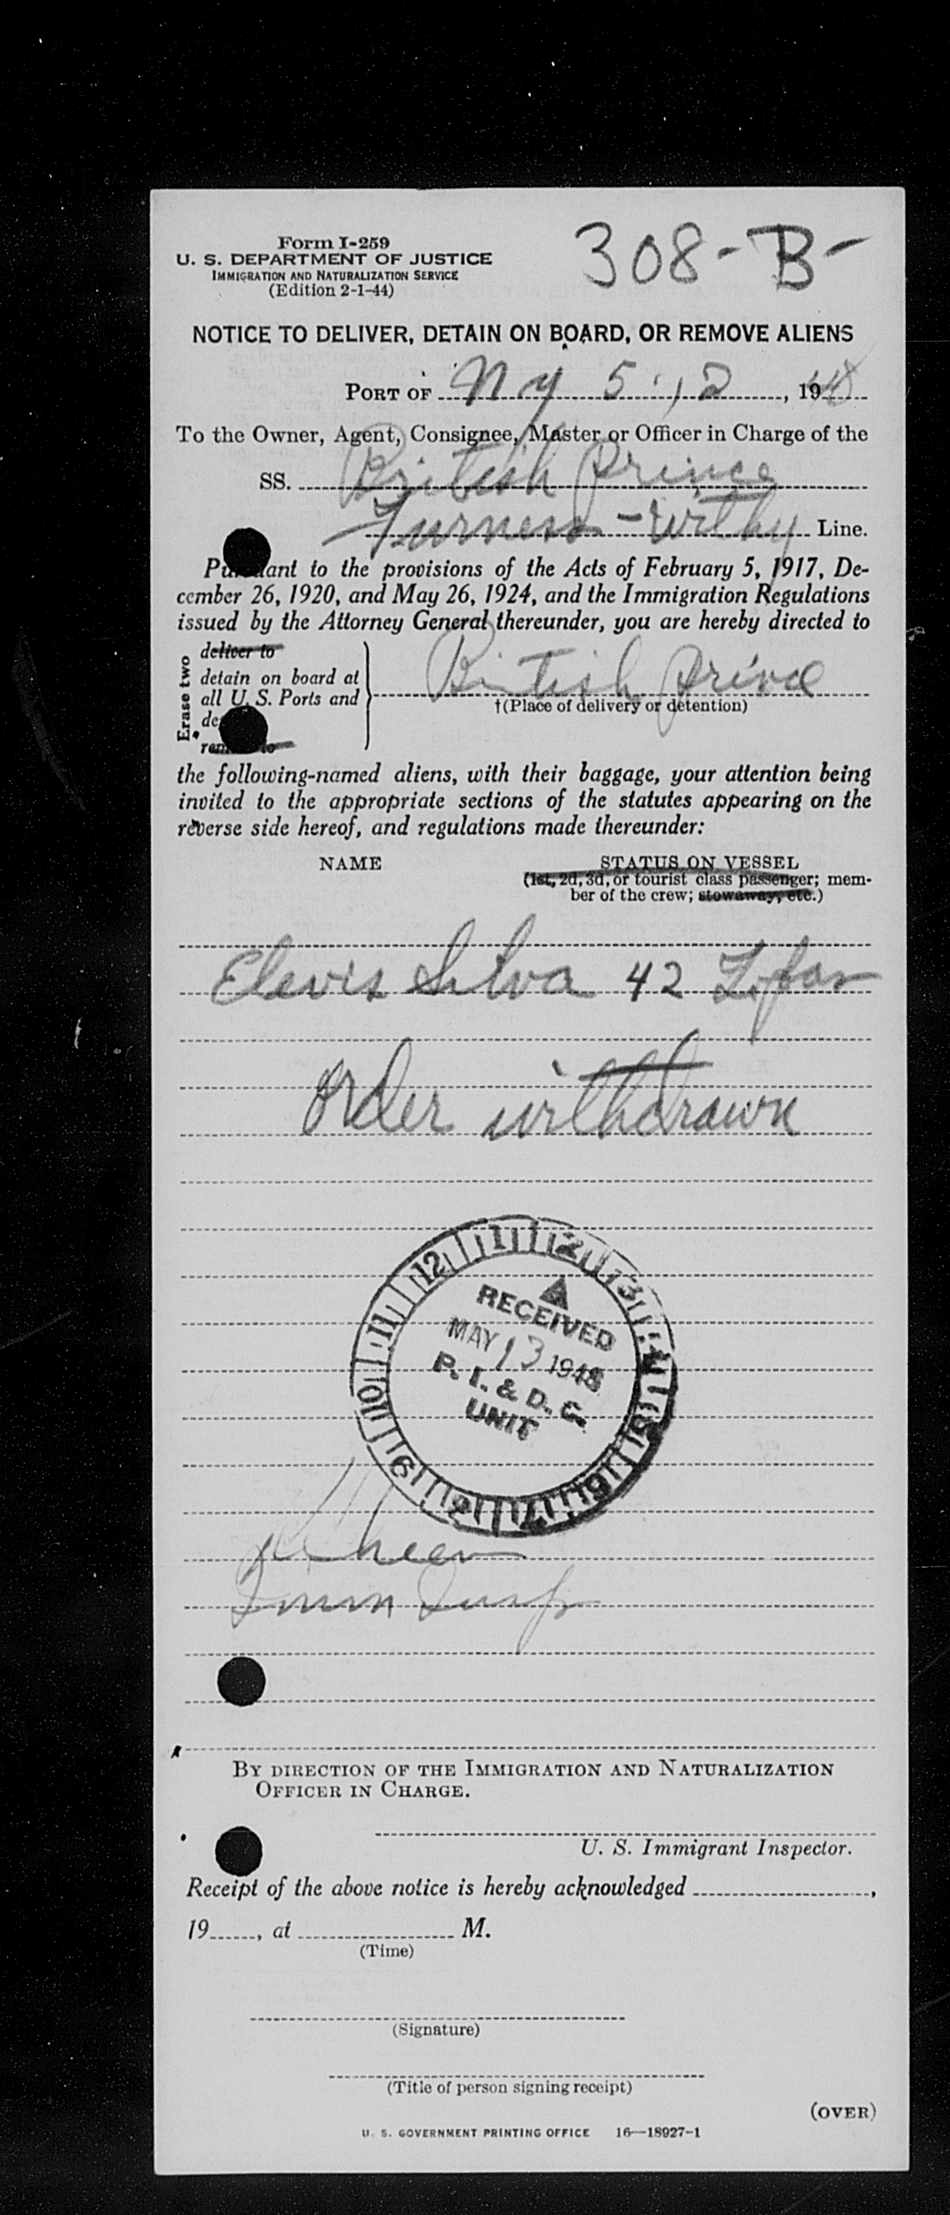 308-B-
Form I-259
U. S. DEPARTMENT OF JUSTICE
IMMIGRATION AND NATURALIZATION SERVICE
(Edition 2-1-44)
NOTICE TO DELIVER, DETAIN ON BOARD, OR REMOVE ALIENS
PORT OF N y 5 12, 1948
To the Owner, Agent, Consignee, Master or Officer in Charge of the
SS. British Prince
Furness-Withy Line.
Pursuant to the provisions of the Acts of February 5, 1917, De-
cember 26, 1920, and May 26, 1924, and the Immigration Regulations
issued by the Attorney General thereunder, you are hereby directed to
Erase two
deliver to
detain on board at
all U. S. Ports and
remove to
British Prince
†(Place of delivery or detention)
the following-named aliens, with their baggage, your attention being
invited to the appropriate sections of the statutes appearing on the
reverse side hereof, and regulations made thereunder:
NAME STATUS ON VESSEL
(1st, 2d, 3d, or tourist class passenger; mem-
ber of the crew; stowaway, etc.)
Silva 42
Order withdrawn
12 1 2 3 4 5 6 7 8 9 10 11
RECEIVED
MAY 13 1948
P. I. & D. C.
UNIT
Imm Insp
BY DIRECTION OF THE IMMIGRATION AND NATURALIZATION
OFFICER IN CHARGE.
U. S. Immigrant Inspector.
Receipt of the above notice is hereby acknowledged ,
19 , at M.
(Time)
(Signature)
(Title of person signing receipt)
(OVER)
U. S. GOVERNMENT PRINTING OFFICE 16—18927-1